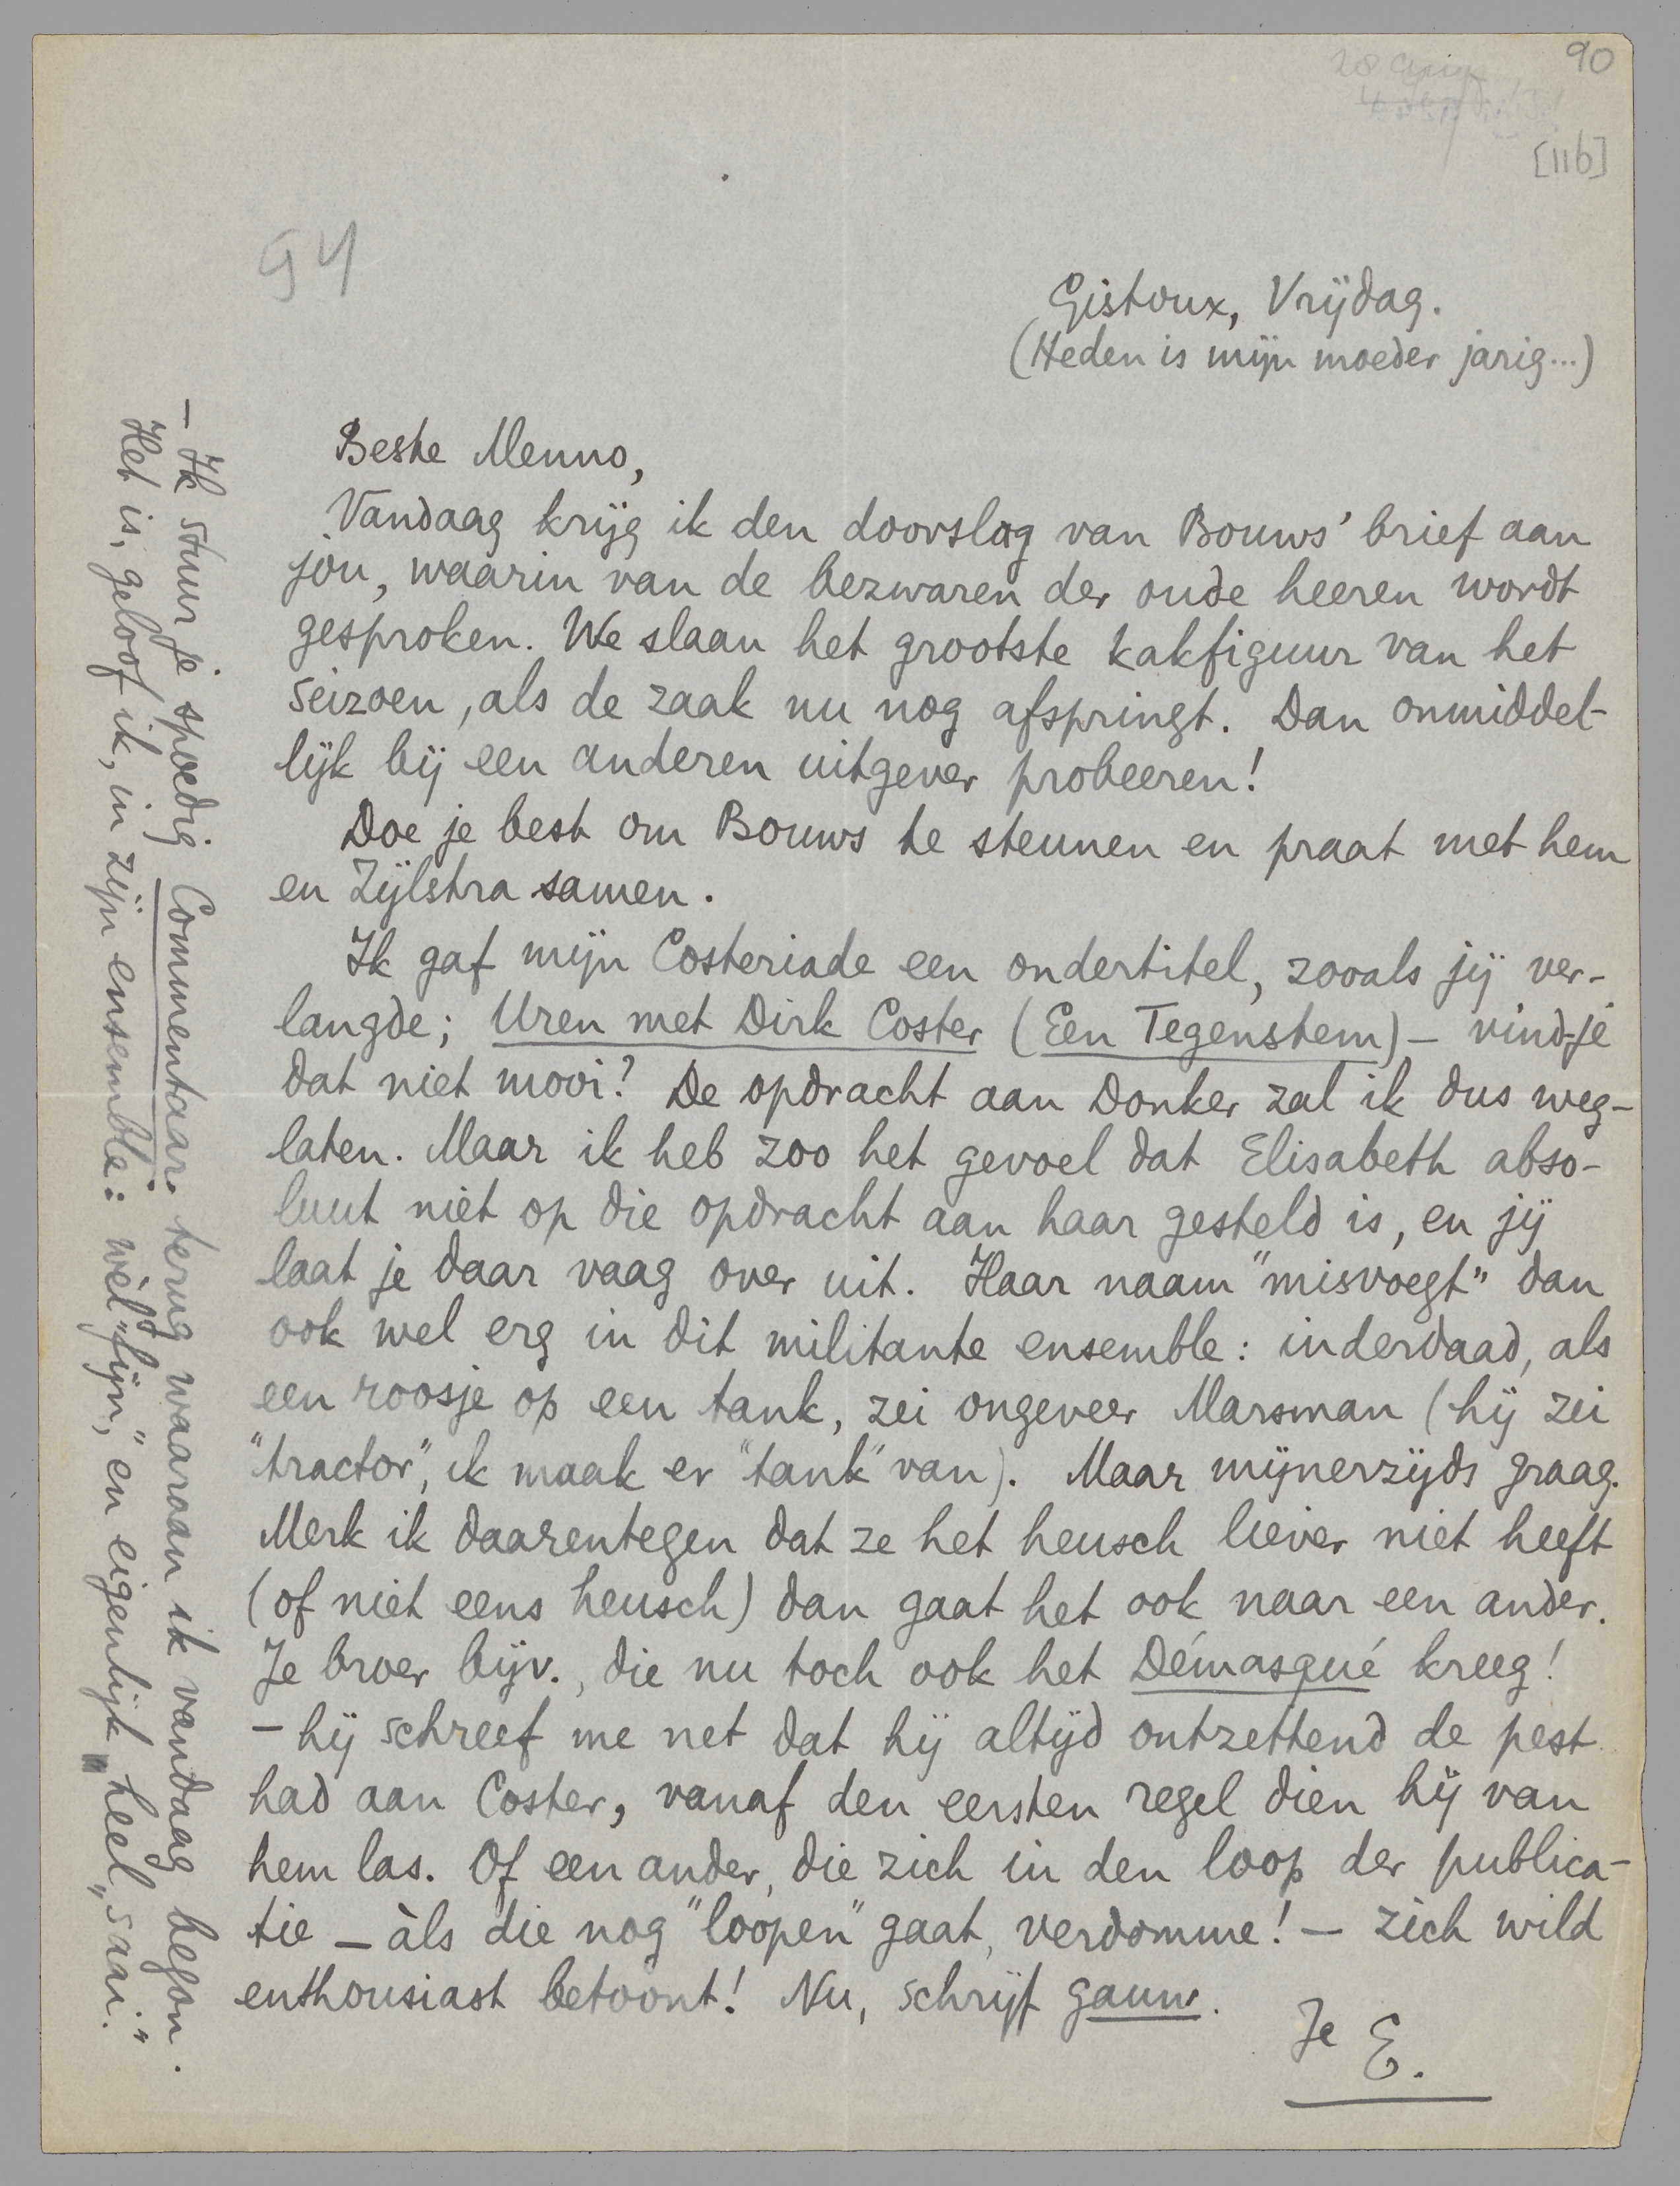 90
[116]
94
Gistoux, Vrijdag.
(Heden is mijn moeder jarig...)
Beste Menno,
Vandaag krijg ik den doorslag van Bouws' brief aan
jou, waarin van de bezwaren der oude heeren wordt
gesproken. We slaan het grootste kakfiguur van het
seizoen, als de zaak nu nog afspringt. Dan onmiddel-
lijk bij een anderen uitgever probeeren!
Doe je best om Bouws te steunen en praat met hem
en Zijlstra samen.
Ik gaf mijn Costeriade een ondertitel, zooals jij ver-
langde; Uren met Dirk Coster (Een Tegenstem) – vind-je
dat niet mooi? De opdracht aan Donker zal ik dus weg-
laten. Maar ik heb zoo het gevoel dat Elisabeth abso-
luut niet op die opdracht aan haar gesteld is, en jij
laat je daar vaag over uit. Haar naam "misvoegt" dan
ook wel erg in dit militante ensemble: inderdaad, als
een roosje op een tank, zei ongeveer Marsman (hij zei
"tractor", ik maak er "tank" van). Maar mijnerzijds graag.
Merk ik daarentegen dat ze het heusch liever niet heeft
(of niet eens heusch) dan gaat het ook naar een ander.
Je broer bijv., die nu toch ook het Démasqué kreeg!
– hij schreef me net dat hij altijd ontzettend de pest
had aan Coster, vanaf den eersten regel dien hij van
hem las. Of een ander, die zich in den loop der publica-
tie – àls die nog "loopen" gaat, verdomme! – zich wild
enthousiast betoont! Nu, schrijf gauw.
Je E.
– Ik stuur je spoedig Commentaar terug waaraan ik vandaag begon.
Het is, geloof ik, in zijn ensemble: wèl "fijn," en eigenlijk heel "saai."